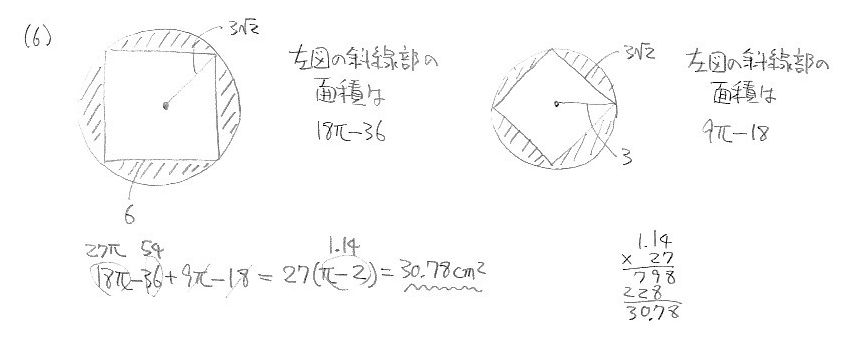 (6)
3√2
6
左図の斜線部の
面積は
18π-36
3√2
3
左図の斜線部の
面積は
9π-18
27π 54 1.14
18π-36+9π-18=27(π-2)=30.78cm²
1.14
× 27
798
228
30.78